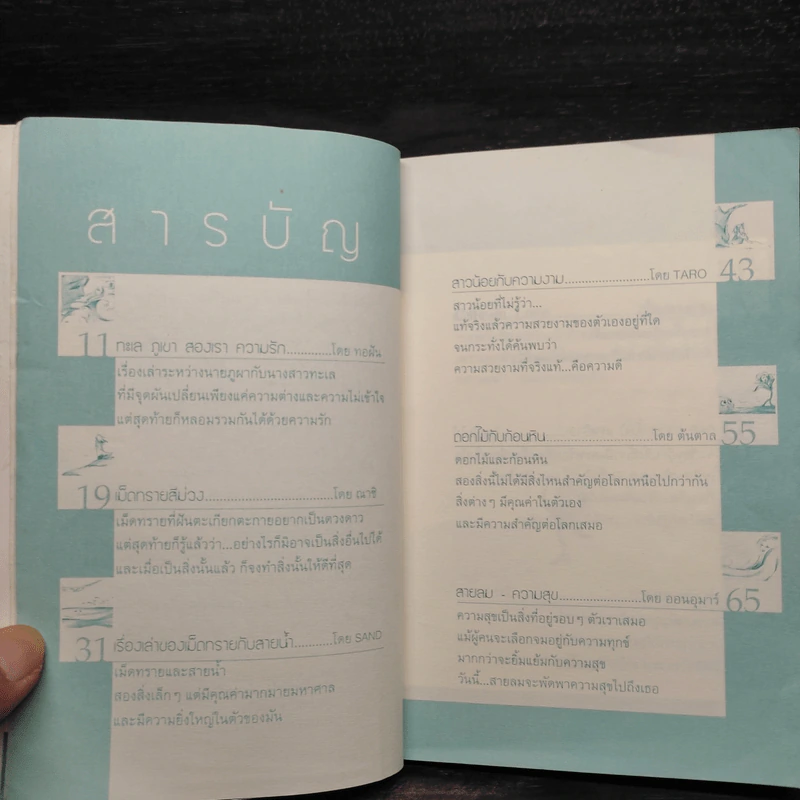 สารบัญ
11 ทะเล ภูเขา สองเรา ความรัก............โดย ทอฝัน
เรื่องเล่าระหว่างนายภูผากับนางสาวทะเล
ที่มีจุดผันเปลี่ยนเพียงแค่ความต่างและความไม่เข้าใจ
แต่สุดท้ายก็หลอมรวมกันได้ด้วยความรัก
19 เม็ดทรายสีม่วง....................................โดย ณาชิ
เม็ดทรายที่ฝันตะเกียกตะกายอยากเป็นดวงดาว
แต่สุดท้ายก็รู้แล้วว่า...อย่างไรก็มิอาจเป็นสิ่งอื่นไปได้
และเมื่อเป็นสิ่งนั้นแล้ว ก็จงทำสิ่งนั้นให้ดีที่สุด
31 เรื่องเล่าของเม็ดทรายกับสายน้ำ..........โดย SAND
เม็ดทรายและสายน้ำ
สองสิ่งเล็กๆ แต่มีคุณค่ามากมายมหาศาล
และมีความยิ่งใหญ่ในตัวของมัน
สาวน้อยกับความงาม........................โดย TARO 43
สาวน้อยที่ไม่รู้ว่า...
แท้จริงแล้วความสวยงามของตัวเองอยู่ที่ใด
จนกระทั่งได้ค้นพบว่า
ความสวยงามที่จริงแท้...คือความดี
ดอกไม้กับก้อนหิน..............................โดย ต้นตาล 55
ดอกไม้และก้อนหิน
สองสิ่งนี้ไม่ได้มีสิ่งไหนสำคัญต่อโลกเหนือไปกว่ากัน
สิ่งต่างๆ มีคุณค่าในตัวเอง
และมีความสำคัญต่อโลกเสมอ
สายลม - ความสุข........................โดย ออนอุมาร์ 65
ความสุขเป็นสิ่งที่อยู่รอบๆ ตัวเราเสมอ
แม้ผู้คนจะเลือกจมอยู่กับความทุกข์
มากกว่าจะยิ้มแย้มกับความสุข
วันนี้...สายลมจะพัดพาความสุขไปถึงเธอ